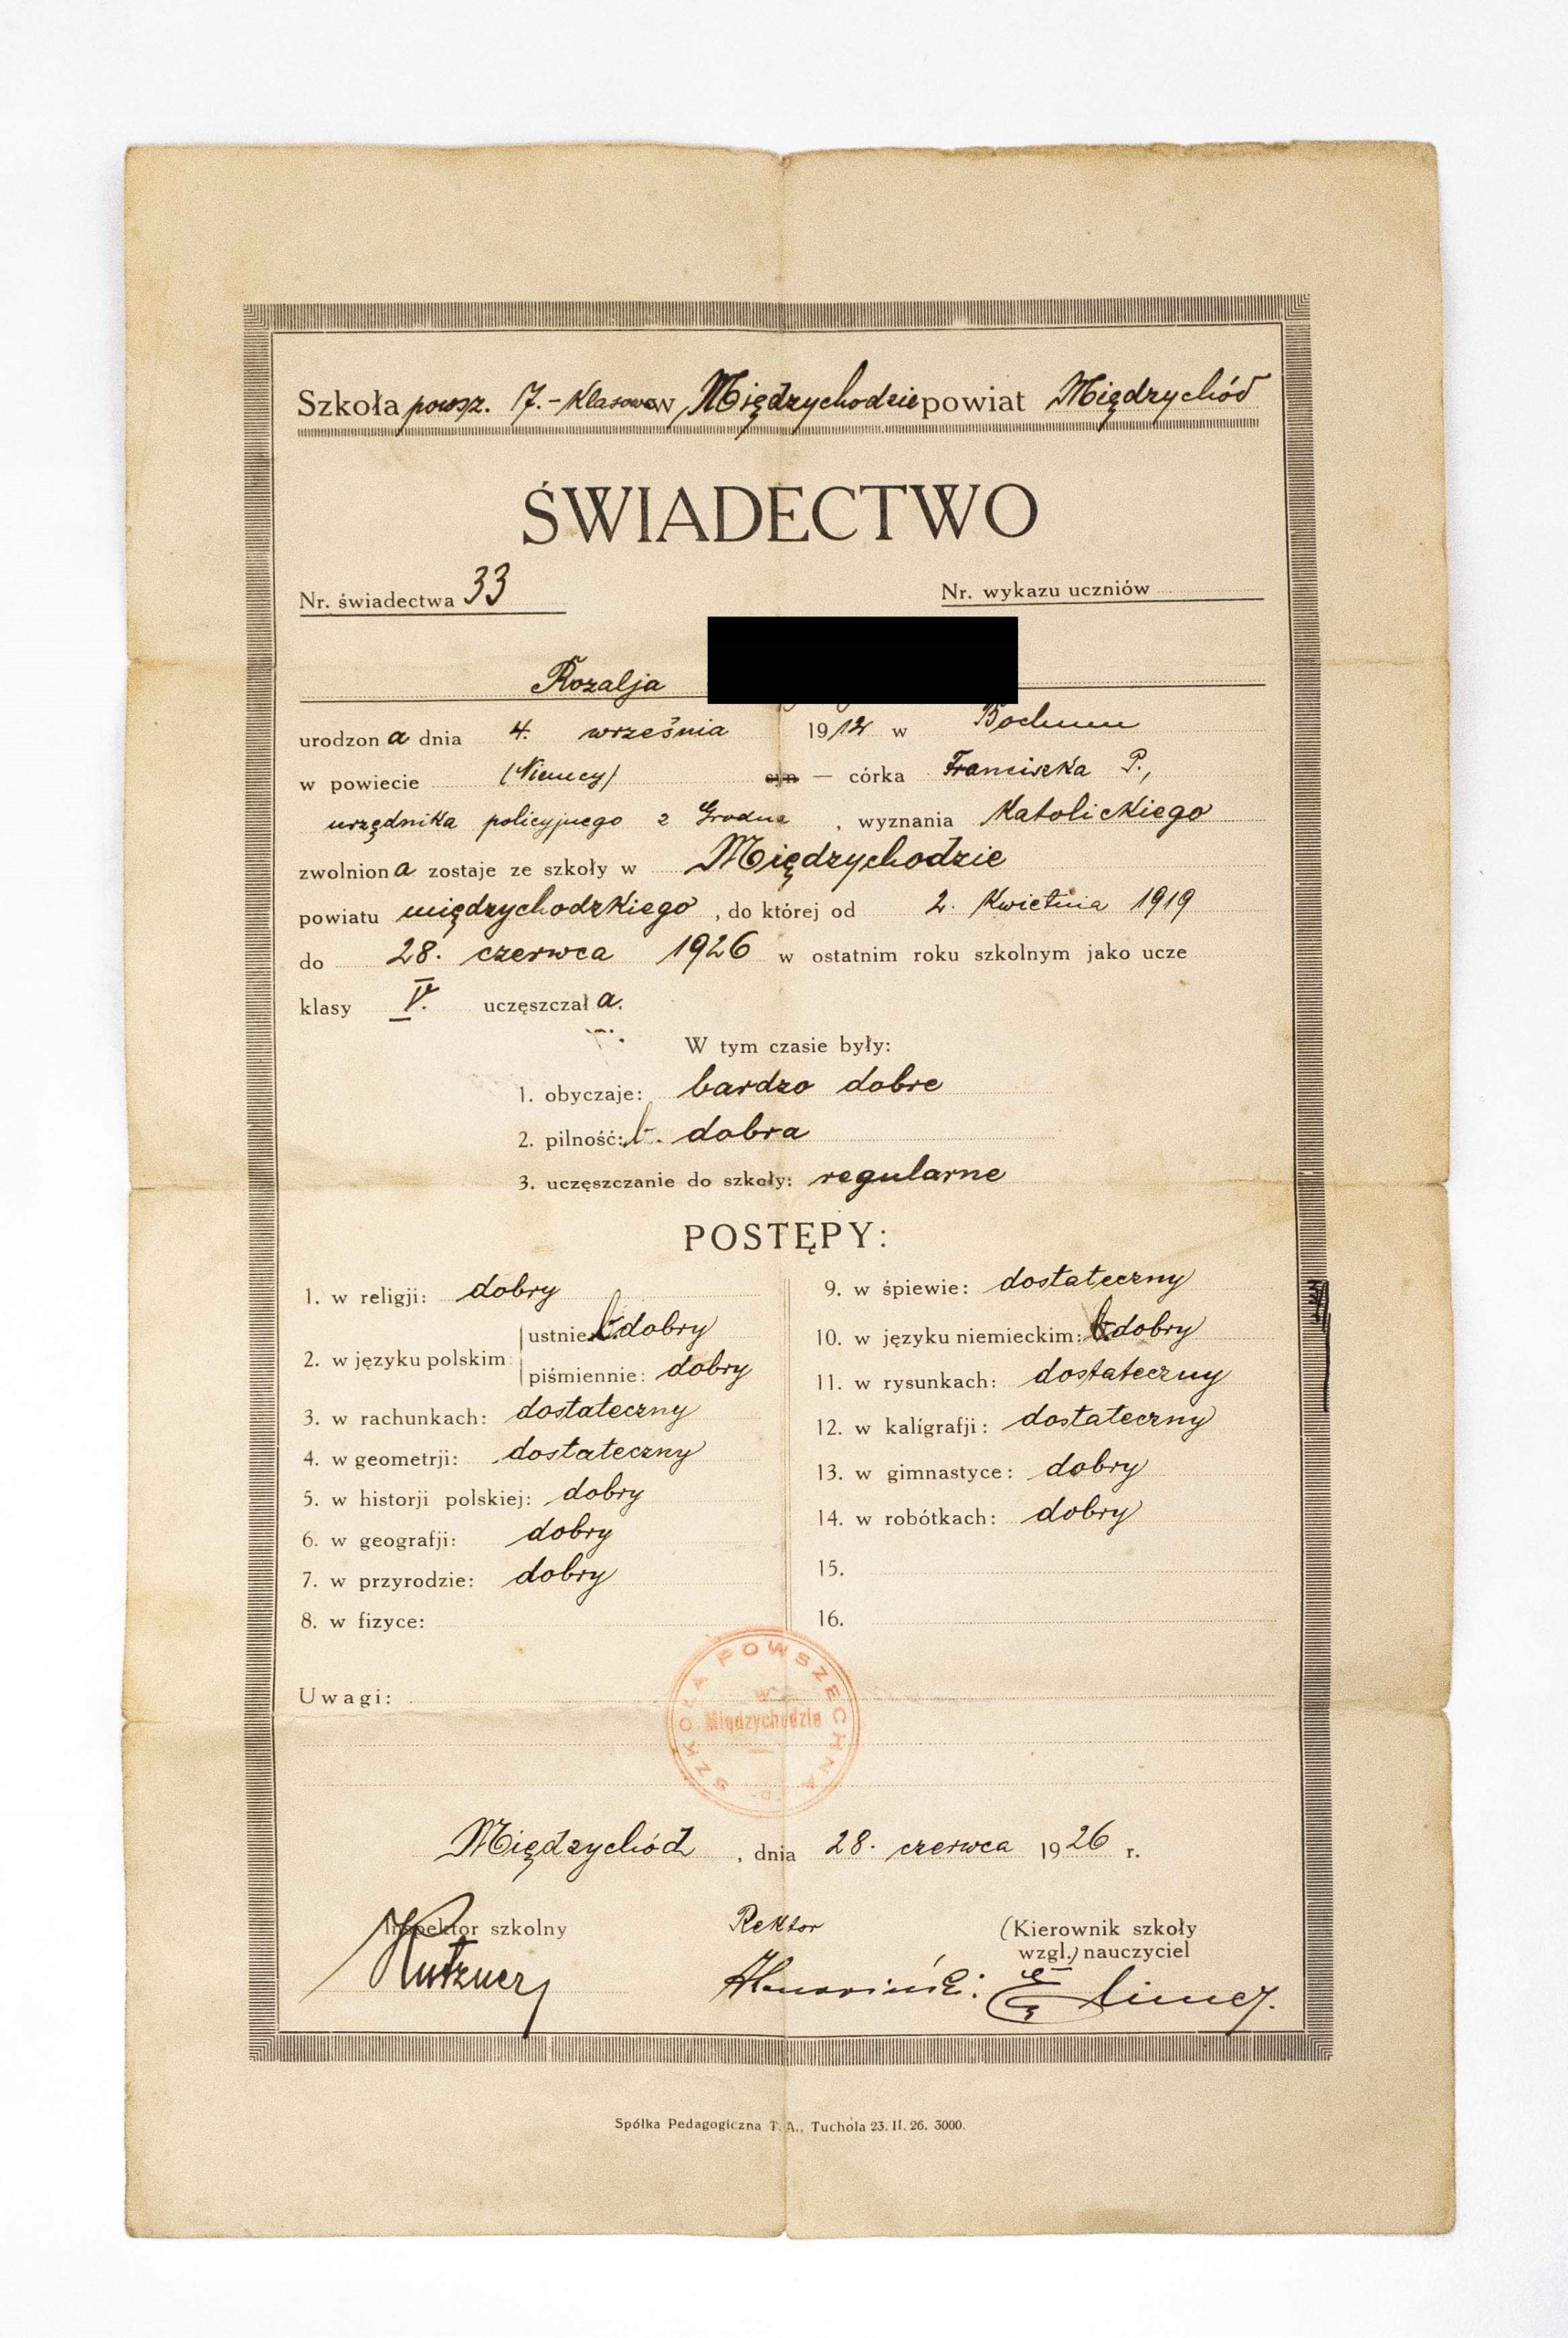 Szkoła powsz. 7.-klasowa w Międzychodzie powiat Międzychód
ŚWIADECTWO
Nr. świadectwa 33
Nr. wykazu uczniów
Rozalja
urodzona dnia 4. września 1912 w Bochum
w powiecie (Niemcy) syn — córka Franciszka P.,
urzędnika policyjnego z Grodna, wyznania katolickiego
zwolniona zostaje ze szkoły w Międzychodzie
powiatu międzychodzkiego, do której od 2. kwietnia 1919
do 28. czerwca 1926 w ostatnim roku szkolnym jako ucze
klasy V. uczęszczała.
W tym czasie były:
1. obyczaje: bardzo dobre
2. pilność: b. dobra
3. uczęszczanie do szkoły: regularne
POSTĘPY:
1. w religji: dobry
2. w języku polskim: ustnie: b. dobry
piśmiennie: dobry
3. w rachunkach: dostateczny
4. w geometrji: dostateczny
5. w historji polskiej: dobry
6. w geografji: dobry
7. w przyrodzie: dobry
8. w fizyce:
9. w śpiewie: dostateczny
10. w języku niemieckim: b. dobry
11. w rysunkach: dostateczny
12. w kaligrafji: dostateczny
13. w gimnastyce: dobry
14. w robótkach: dobry
15.
16.
Uwagi:
SZKOŁA POWSZECHNA
w
Międzychodzie
Międzychód, dnia 28. czerwca 1926 r.
Inspektor szkolny
Rektor
(Kierownik szkoły
wzgl.) nauczyciel
Spółka Pedagogiczna T. A., Tuchola 23. II. 26. 3000.